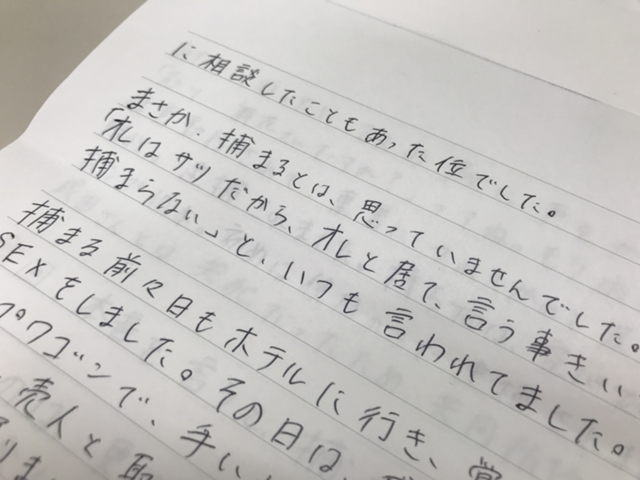 に相談したこともあった位でした。
まさか、捕まるとは、思っていませんでした。
「オレはサツだから、オレと居て、言う事きい
捕まらない」と、いつも言われてました。
捕まる前々日もホテルに行き、覚
SEXをしました。その日は、
プワゴンで、手い
売人と取
りま